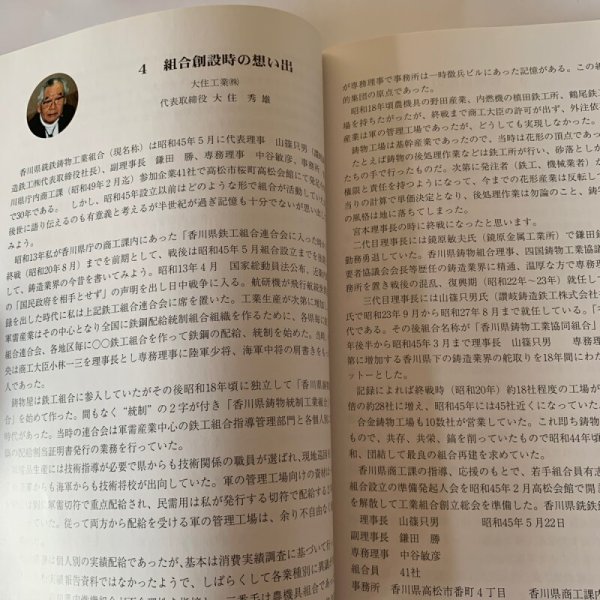 4　組合創設時の想い出
大住工業㈱
代表取締役 大 住　秀 雄
香川県銑鉄鋳物工業組合（現名称）は昭和45年５月に代表理事　山篠只男（讃岐
造鉄工㈱代表取締役社長）、副理事長　鎌田　勝、専務理事　中谷敏彦、事務所
川県庁内商工課（昭和49年２月迄）参加企業41社で高松市桜町高松会館にて発足
で30年である。　しかし、昭和45年設立以前はどのような形で組合が活動していた
後世に語り伝えるのも有意義と考えるが半世紀が過ぎ記憶も十分でないが思い
みよう。
昭和13年私が香川県庁の商工課内にあった「香川県鉄工組合連合会に入った時か
終戦（昭和20年８月）までを前期として、戦後は昭和45年５月組合設立までを後
して、鋳造業界の今昔を書いてみよう。昭和13年４月　国家総動員法公布、近衛内
の「国民政府を相手とせず」の声明を出し日中戦争に入る。航研機が飛行航続長
録を出した時代に私は上記鉄工組合連合会に席を置いた。工業生産が次第に増加し
軍需産業はその中心となり全国に鉄鋼配給統制組合組織を作るために、各県毎に
組合連合会、各地区毎に〇〇鉄工組合を作って鉄鋼の配給、統制を始めた。当時
央は商工大臣小林一三を理事長とし専務理事に陸軍少将、海軍中将の肩書きをもっ
人であった。
鋳物屋は鉄工組合に参入していたがその後昭和18年頃に独立して「香川県鋳物
合」を始めて作った。間もなく“統制”の２字が付き「香川県鋳物統制工業組合」
時代があった。当時の連合会は軍需産業中心の鉄工組合指導管理部門と各個人別
の配給割当証明書発行の業務を行っていた。
生産には技術指導が必要で県からも技術関係の職員が選ばれ、現地巡回
からも海軍からも技術将校が出向していた。軍の管理工場向けの資材は
別に軍需切符で重点配給され、民需用は私が発行する切符で配給する
ていた。従って両方から配給を受ける軍の管理工場は、余り不自由なく
は個人別の実績配給であったが、基本は消費実績調査に基づいて行
績報告資料ではなかったようで、しばらくして各業種別に異議
が専務理事で事務所は一時徴兵ビルにあった記憶がある。この統
的集団の原点であった。
昭和18年頃農機具の野田産業、内燃機の槙田鉄工所、鶴尾鉄工
場を持ちたがったが、終戦まで商工大臣の許可が出ず、外注依
産業は軍の管理工場であったが、どうしても実現しなかった。
鋳物工場は基幹産業であったので、当時は花形の頂点であった
たとえば鋳物の後処理作業などは鉄工所が行い、砂落としから
たちの手で行ったものだ。次第に発注者（鉄工、機械業者）か
権限と責任を持つようになって、今までの花形産業は反転して
当りの計算で単価決定となり、後処理作業は勿論のこと、鋳
の風格は地に落ちてしまった。
宮本理事長の時に終戦になったと思います。
二代目理事長には鏡原敏夫氏（鏡原金属工業所）で鎌田
勤務勇退していた。香川県鋳物組合理事、四国鋳物工業協
要者協議会会長等歴任の鋳造業界に精通、温厚な方で専務理
事務所を置き戦後の混乱、復興期（昭和22年～23年）就任し
三代目理事長には山篠只男氏（讃岐鋳造鉄工株式会社
氏で昭和23年９月から昭和27年８月まで就任している。「香
代である。その後組合名称が「香川県鋳物工業協同組合」
年後半から昭和45年３月まで理事長　山篠只男　　専務理事
第に増加する香川県下の鋳造業界の舵取りを18年間にわた
ットーとした。
記録によれば終戦時（昭和20年）約18社程度の工場が
倍の約28社に増え、昭和45年には45社近くになっていた。
合金鋳物工場も10数社が営業していた。これ即ち鋳物
もので、共存、共栄、鎬を削っていたもので昭和44年
和、団結して最良の組合再建を求めていた。
香川県商工課の指導、応援のもとで、若手組合員有志
組合の設立準備発起人会を昭和45年２月高松会館で開
を解散して工業組合創立総会を準備した。香川県銑鉄
理事長　　山篠只男　　　　昭和45年５月22日
副理事長　鎌田　勝
専務理事　中谷敏彦
組合員　　41社
事務所　香川県高松市番町４丁目　　香川県商工課内